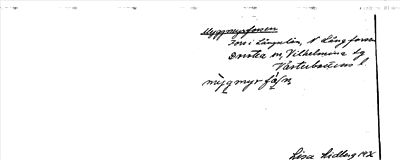 Myggmyrforsen
Fors i Långselån, N Långforsen
Dorotea sn, Vilhelmina tg
Västerbottens l.
mỳgmyrfàṣṇ
Lisa Lidberg 1936